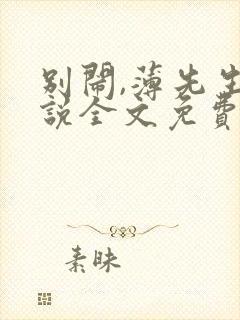 别闹,薄先生
说全文免費
素昧